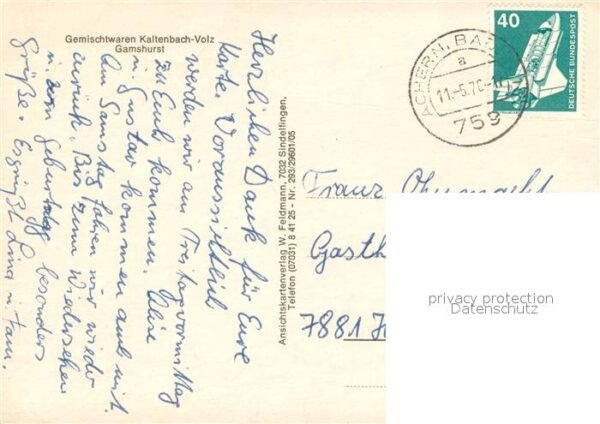 Gemischtwaren Kaltenbach-Volz
Gamshurst
Herzlichen Dank für Eure
Karte. Voraussichtlich
werden wir am Freitagvormittag
zu Euch kommen.
u. Gustav kommen auch mit.
Am Samstag fahren wir wieder
zurück. Bis zum Wiedersehen
u. zum Geburtstag besonders
Grüße. Es grüßt Lina u. Fam.
Ansichtskartenverlag W. Feldmann, 7032 Sindelfingen,
Telefon (07031) 8 41 25 - Nr. 293/29601/05
40
DEUTSCHE BUNDESPOST
ACHERN, BAD
a
11.-5.76
759
Franz
Gasth
7881
privacy protection
Datenschutz